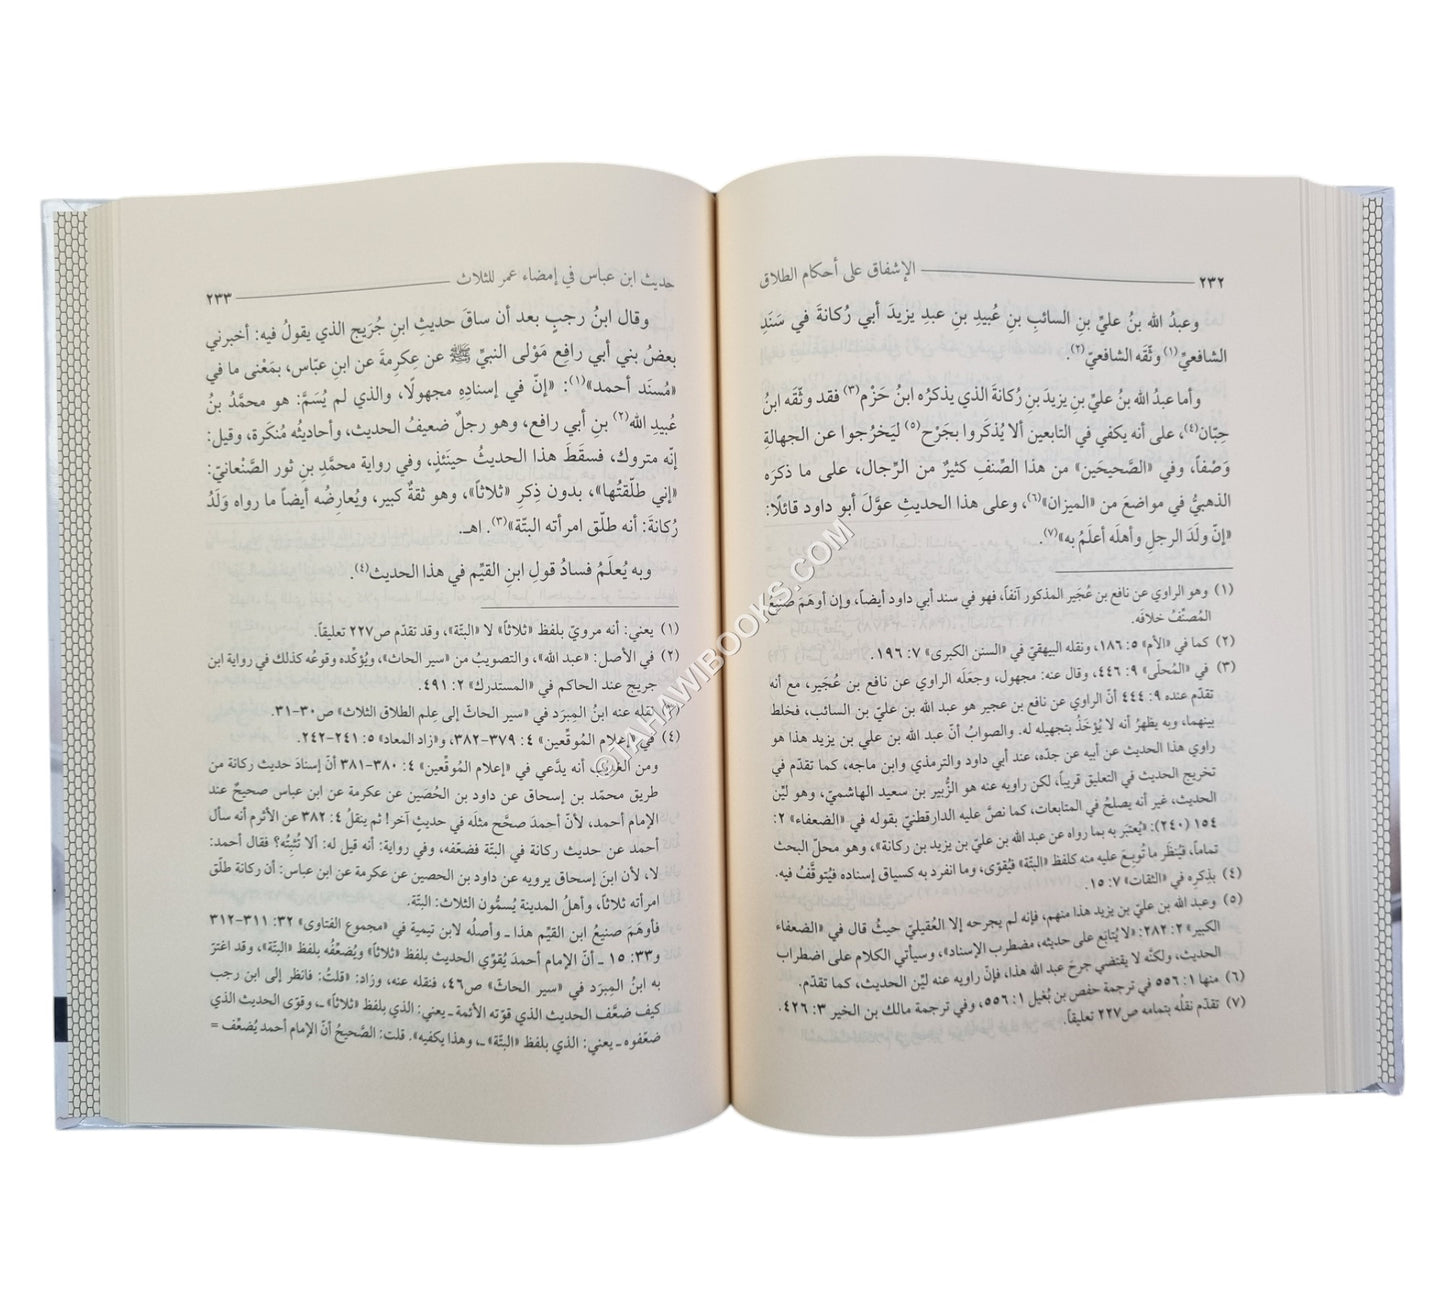 ٢٣٢ الإشفاق على أحكام الطلاق
وعبدُ الله بنُ عليِّ بنِ السائبِ بنِ عُبيدِ بنِ عبدِ يزيدَ أبي رُكانةَ في سَنَدِ
الشافعيِّ(١) وثّقَه الشافعيّ(٢).
وأما عبدُ الله بنُ عليِّ بنِ يزيدَ بنِ رُكانةَ الذي يذكرُه ابنُ حَزْم(٣) فقد وثّقَه ابنُ
حِبّان(٤)، على أنه يكفي في التابعين ألا يُذكَروا بجَرْح(٥) ليَخرُجوا عن الجهالةِ
وَصْفاً، وفي «الصَّحيحَين» من هذا الصِّنفِ كثيرٌ من الرِّجال، على ما ذكرَه
الذهبيُّ في مواضعَ من «الميزان»(٦)، وعلى هذا الحديثِ عوَّلَ أبو داود قائلًا:
«إنّ ولَدَ الرجلِ وأهلَه أعلَمُ به»(٧).
(١) وهو الراوي عن نافع بن عُجَير المذكور آنفاً، فهو في سند أبي داود أيضاً، وإن أوهَمَ صَنيعُ
المُصنِّفُ خلافَه.
(٢) كما في «الأم» ٥: ١٨٦، ونقله البيهقيّ في «السنن الكبرى» ٧: ١٩٦.
(٣) في «المُحلَّى» ٩: ٤٤٦، وقال عنه: مجهول، وجعَلَه الراوي عن نافع بن عُجَير، مع أنه
تقدّم عنده ٩: ٤٤٤ أنّ الراوي عن نافع بن عجير هو عبد الله بن عليّ بن السائب، فخلط
بينهما، وبه يظهرُ أنه لا يُؤخَذُ بتجهيله له. والصوابُ أنّ عبد الله بن علي بن يزيد هذا هو
راوي هذا الحديث عن أبيه عن جدّه، عند أبي داود والترمذي وابن ماجه، كما تقدّم في
تخريج الحديث في التعليق قريباً، لكن راويه عنه هو الزُّبير بن سعيد الهاشميّ، وهو ليِّن
الحديث، غير أنه يصلحُ في المتابعات، كما نصَّ عليه الدارقطنيّ بقوله في «الضعفاء» ٢:
١٥٤ (٢٤٠): «يُعتبَر به بما رواه عن عبد الله بن عليّ بن يزيد بن ركانة»، وهو محلّ البحث
تماماً، فيُنظَر ما تُوبعَ عليه منه كلفظ «البتّة» فيُقوّى، وما انفرد به كسياق إسناده فيُتوقَّفُ فيه.
(٤) بذِكرِه في «الثقات» ٧: ١٥.
(٥) وعبد الله بن عليّ بن يزيد هذا منهم، فإنه لم يجرحه إلا العُقيليّ حيثُ قال في «الضعفاء
الكبير» ٢: ٢٨٢: «لا يُتابَع على حديثه، مضطرب الإسناد»، وسيأتي الكلام على اضطراب
الحديث، ولكنّه لا يقتضي جرحَ عبد الله هذا، فإنّ راويه عنه ليِّن الحديث، كما تقدّم.
(٦) منها ١: ٥٥٦ في ترجمة حفص بن بُغيل ١: ٥٥٦، وفي ترجمة مالك بن الخير ٣: ٤٢٦.
(٧) تقدّم نقلُه بتمامه ص٢٢٧ تعليقاً.
حديث ابن عباس في إمضاء عمر للثلاث ٢٣٣
وقال ابنُ رجبٍ بعد أن ساقَ حديثَ ابنِ جُرَيج الذي يقولُ فيه: أخبرني
بعضُ بني أبي رافع مَوْلى النبيِّ ﷺ عن عِكرِمةَ عن ابنِ عبّاس، بمَعْنى ما في
«مُسنَد أحمد»(١): «إنّ في إسنادِه مجهولًا، والذي لم يُسَمَّ: هو محمَّدُ بنُ
عُبيدِ الله(٢) بنِ أبي رافع، وهو رجلٌ ضعيفُ الحديث، وأحاديثُه مُنكَرة، وقيل:
إنّه متروك، فسقَطَ هذا الحديثُ حينَئذٍ، وفي رواية محمَّدِ بنِ ثور الصَّنْعانيّ:
«إني طلّقتُها»، بدون ذِكرِ «ثلاثاً»، وهو ثقةٌ كبير، ويُعارِضُه أيضاً ما رواه وَلَدُ
رُكانةَ: أنه طلّق امرأته البتّة»(٣). اهـ.
وبه يُعلَمُ فسادُ قولِ ابنِ القيِّم في هذا الحديث(٤).
(١) يعني: أنه مرويّ بلفظ «ثلاثاً» لا «البتّة»، وقد تقدّم ص٢٢٧ تعليقاً.
(٢) في الأصل: «عبد الله»، والتصويبُ من «سير الحاث»، ويُؤكّده وقوعُه كذلك في رواية ابن
جريج عند الحاكم في «المستدرك» ٢: ٤٩١.
(٣) نقله عنه ابنُ المِبرَد في «سير الحاثّ إلى علم الطلاق الثلاث» ص٣٠-٣١.
(٤) في «إعلام المُوقِّعين» ٤: ٣٧٩-٣٨٢، و«زاد المعاد» ٥: ٢٤١-٢٤٢.
ومن الغريب أنه يدَّعي في «إعلام المُوقِّعين» ٤: ٣٨٠-٣٨١ أنّ إسنادَ حديث ركانة من
طريق محمّد بن إسحاق عن داود بن الحُصَين عن عكرمة عن ابن عباس صحيحٌ عند
الإمام أحمد، لأنّ أحمدَ صحَّح مثلَه في حديثٍ آخر! ثم ينقلُ ٤: ٣٨٢ عن الأثرم أنه سأل
أحمد عن حديث ركانة في البتّة فضعّفه، وفي رواية: أنه قيل له: ألا تُثبِتُه؟ فقال أحمد:
لا، لأن ابنَ إسحاق يرويه عن داود بن الحصين عن عكرمة عن ابن عباس: أن ركانة طلّق
امرأته ثلاثاً، وأهلُ المدينة يُسمُّون الثلاث: البتّة.
فأوهَمَ صنيعُ ابن القيِّم هذا ـ وأصلُه لابن تيمية في «مجموع الفتاوى» ٣٢: ٣١١-٣١٢
و٣٣: ١٥ ـ أنّ الإمام أحمدَ يُقوّي الحديث بلفظ «ثلاثاً» ويُضعِّفُه بلفظ «البتّة»، وقد اغترّ
به ابنُ المِبرَد في «سير الحاثّ» ص٤٦، فنقله عنه، وزاد: «قلتُ: فانظر إلى ابن رجب
كيف ضعَّف الحديثَ الذي قوّته الأئمة ـ يعني: الذي بلفظ «ثلاثاً» ـ، وقوّى الحديث الذي
ضعّفوه ـ يعني: الذي بلفظ «البتّة» ـ، وهذا يكفيه». قلت: الصَّحيحُ أنّ الإمام أحمد يُضعِّف =
©TAHAWIBOOKS.COM